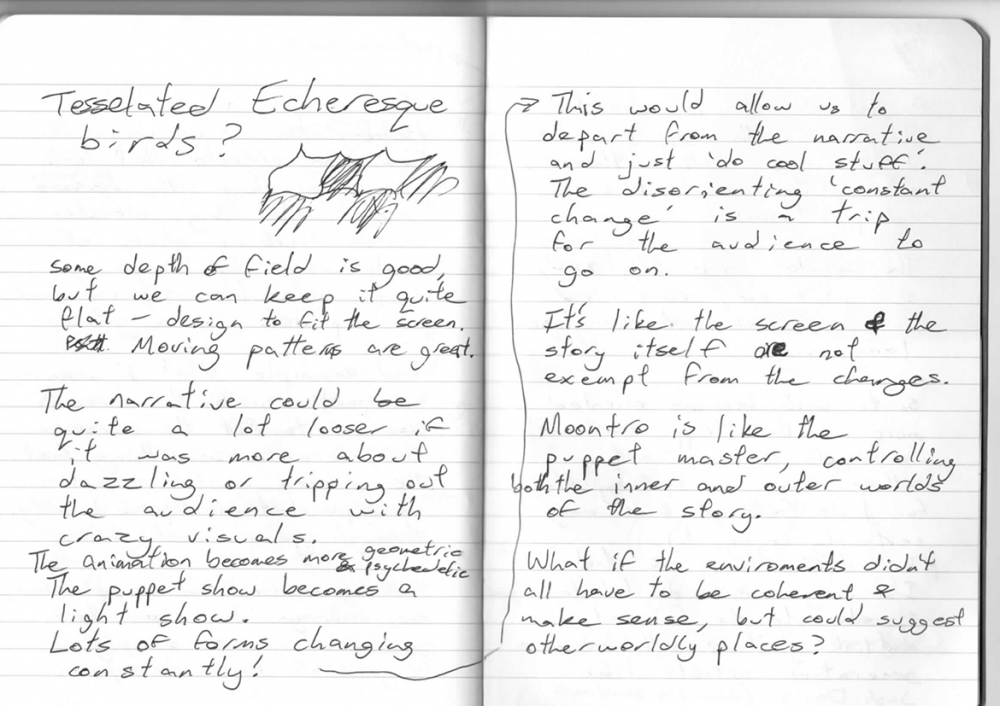 Tesselated Echeresque
birds?
some depth of field is good,
but we can keep it quite
flat – design to fit the screen.
Moving patterns are great.
The narrative could be
quite a lot looser if
it was more about
dazzling or tripping out
the audience with
crazy visuals.
The animation becomes more geometric
& psychedelic
The puppet show becomes a
light show.
Lots of forms changing
constantly!
This would allow us to
depart from the narrative
and just 'do cool stuff'.
The disorienting 'constant
change' is a trip
for the audience to
go on.
It's like the screen & the
story itself are not
exempt from the changes.
Moontro is like the
puppet master, controlling
both the inner and outer worlds
of the story.
What if the enviroments didn't
all have to be coherent &
make sense, but could suggest
otherworldly places?